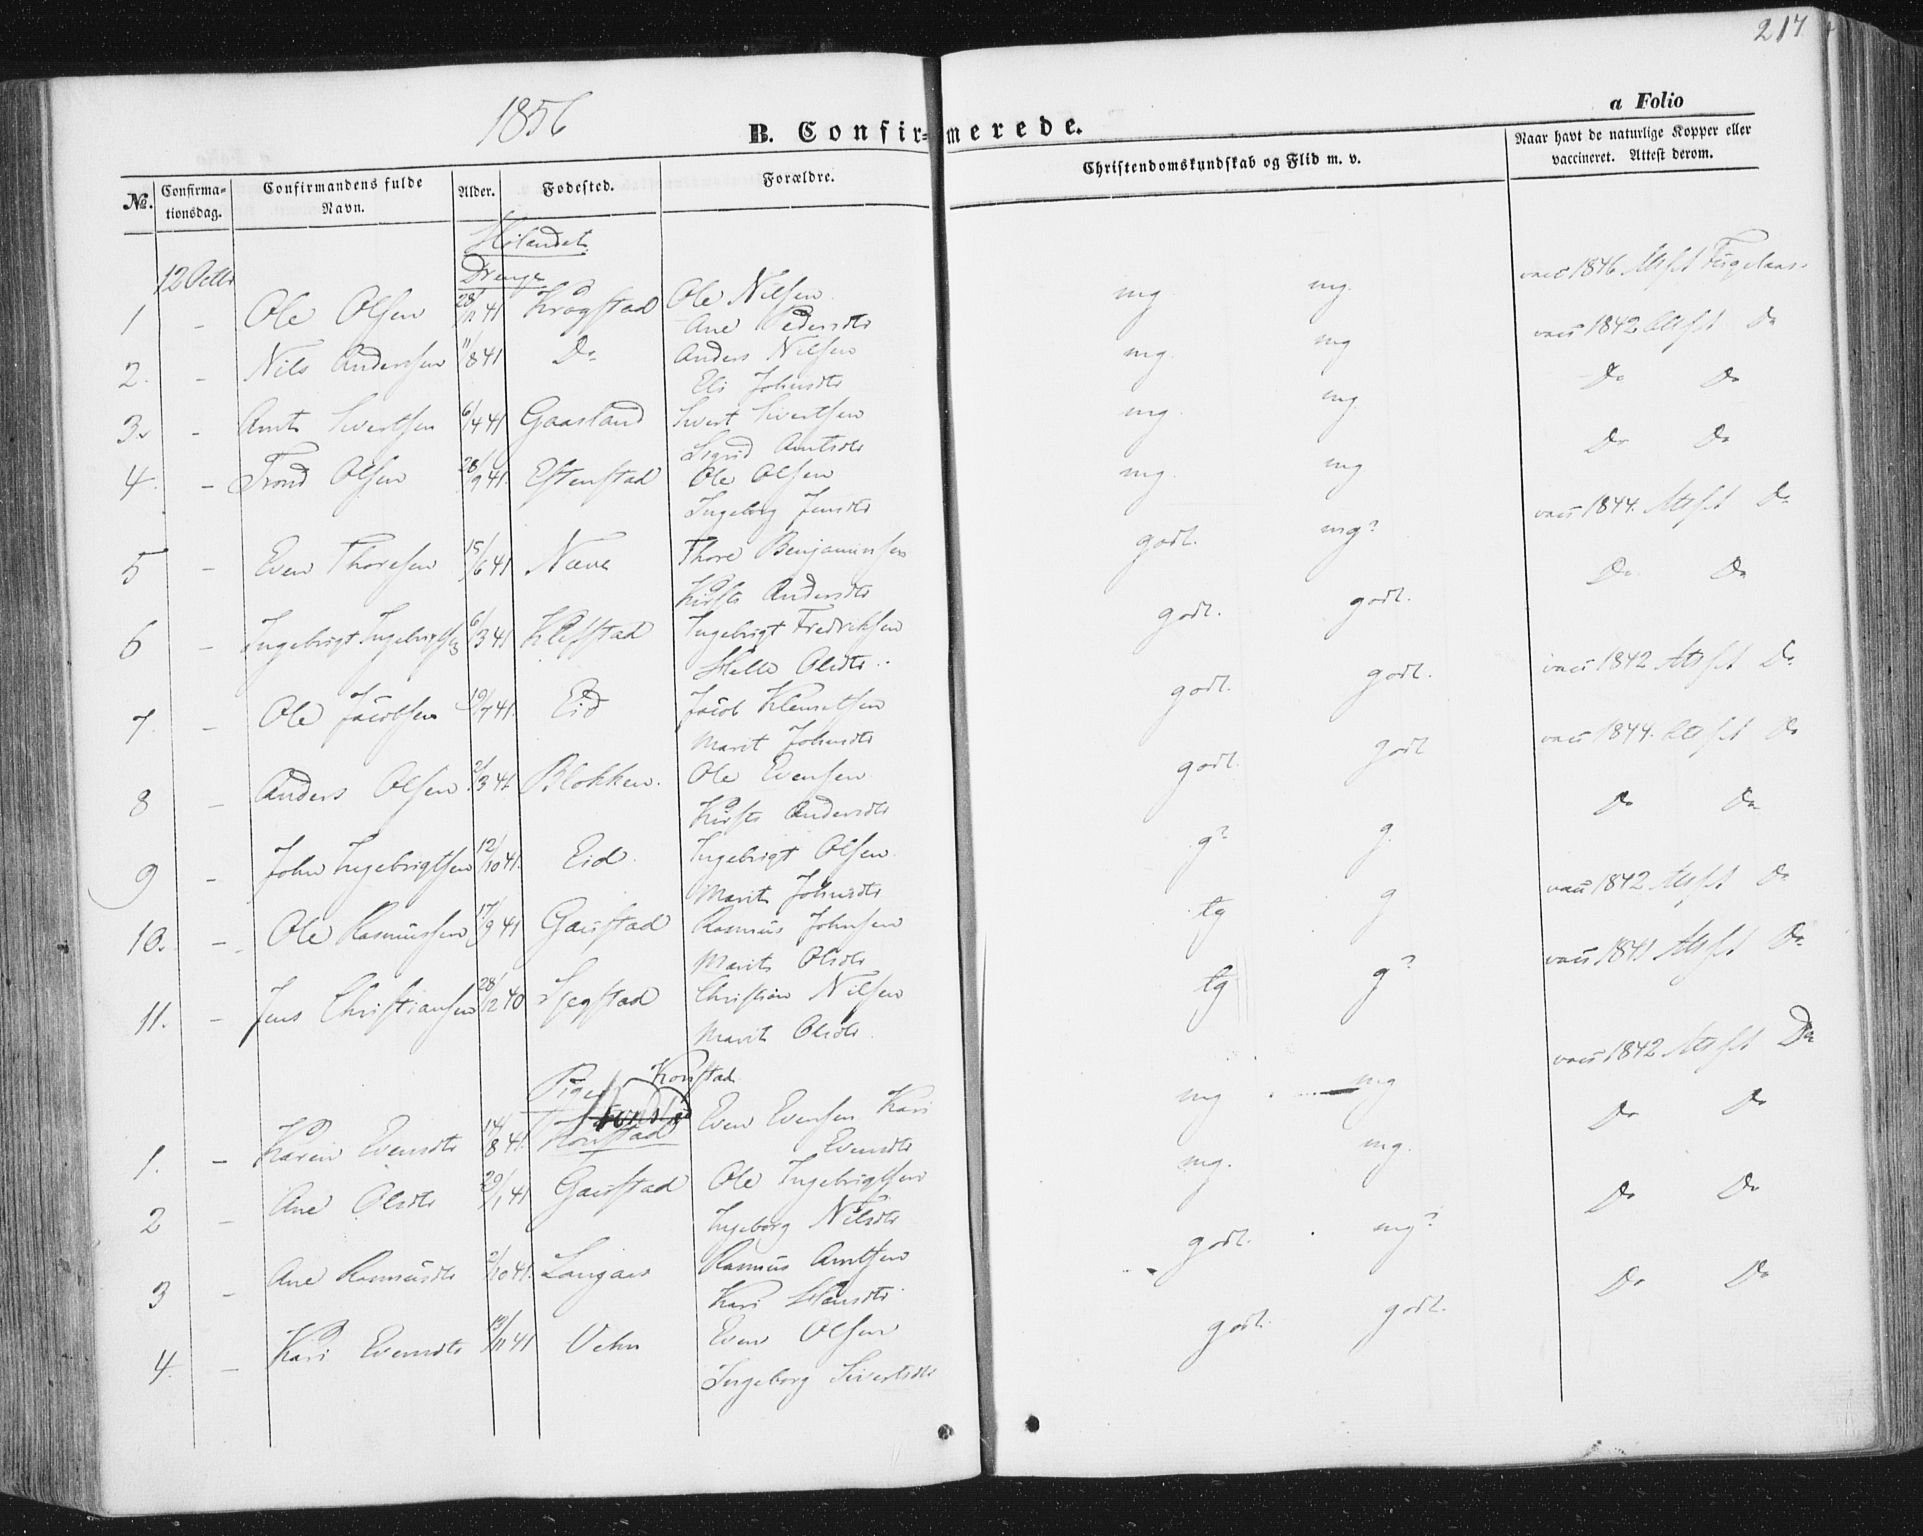 217
1856
a Folio
B. Confirmerede.
№. Confirmationsdag. Confirmandens fulde Navn. Alder. Fødested. Forældre. Christendomskundskab og Flid m. v. Naar havt de naturlige Kopper eller vaccineret. Attest derom.
Hølandet
Drenge
12 Octbr
1 - Ole Olsen 28/11 41 Krogstad Ole Nilsen mg mg vacc 1846 Attest
Ane Pedersdtr
2. - Nils Andersen 11/8 41 Do Anders Nilsen mg. mg vacc 1842 Attest Do
Eli Johnsdtr
3. - Arnt Sivertsen 6/4 41 Gaasland Sivert Sivertsen mg. mg. Do Do
Sigrid Arntsdtr
4. - Trond Olsen 28/9 41. Estenstad Ole Olsen mg. mg Do Do
Ingeborg Jensdtr
5 - Even Thoresen 15/6 41 Næve Thore Benjaminsen godt. mg? vacc 1844. Attest Do
Kirsti Andersdtr
6 - Ingebrigt Ingebrigtsen 6/3 41 Klefstad Ingebrigt Fredriksen godt. godt. Do Do
Olsdtr
7. - Ole Jacobsen 19/7 41. Eid Jacob Klemetsen godt. godt. vacc 1842 Attest Do
Marit Johnsdtr
8 - Anders Olsen 2/3 41 Blokken. Ole Evensen godt. godt vacc 1844. Attest Do
Kirsti Andersdtr
9 - John Ingebrigtsen 12/10 41. Eid. Ingebrigt Olsen g? g. Do Do
Marit Johnsdtr
10. - Ole Rasmussen 17/9 41 Gaustad Rasmus Johnsen tg g vacc 1842 Attest Do
Marit Olsdtr
11. - Jens Christiansen 28/12 40 Christian Nilsen tg g? vacc 1841 Attest Do
Marit Olsdtr.
Piger Konstad
1. - Karen Evensdtr 14/8 41. Konstad Even Evensen Kari mg mg vacc 1842 Attest Do
Evensdtr
2 - Ane Olsdtr 29/1 41 Gaustad Ole Ingebrigtsen mg. mg. Do Do
Ingeborg Nilsdtr
3 - Ane Rasmusdtr 2/10 41. Langaas Rasmus Arntsen godt. mg? Do Do
Kari Hansdtr
4. - Kari Evensdtr 13/11 41 Vehn Even Olsen godt. godt. Do Do
Ingeborg Sivertsdtr